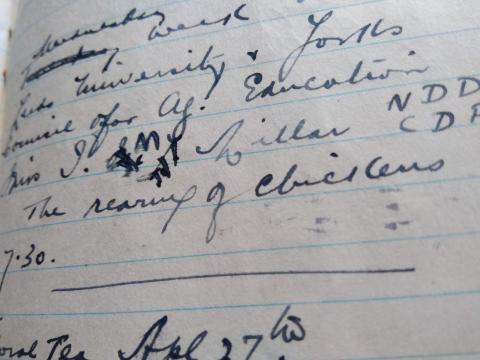 Wednesday week
Leeds University & Yorks
Council for Ag. Education
Miss I. M. Millar NDD
CDP
The rearing of chickens
7.30.
Tea Apl 27th